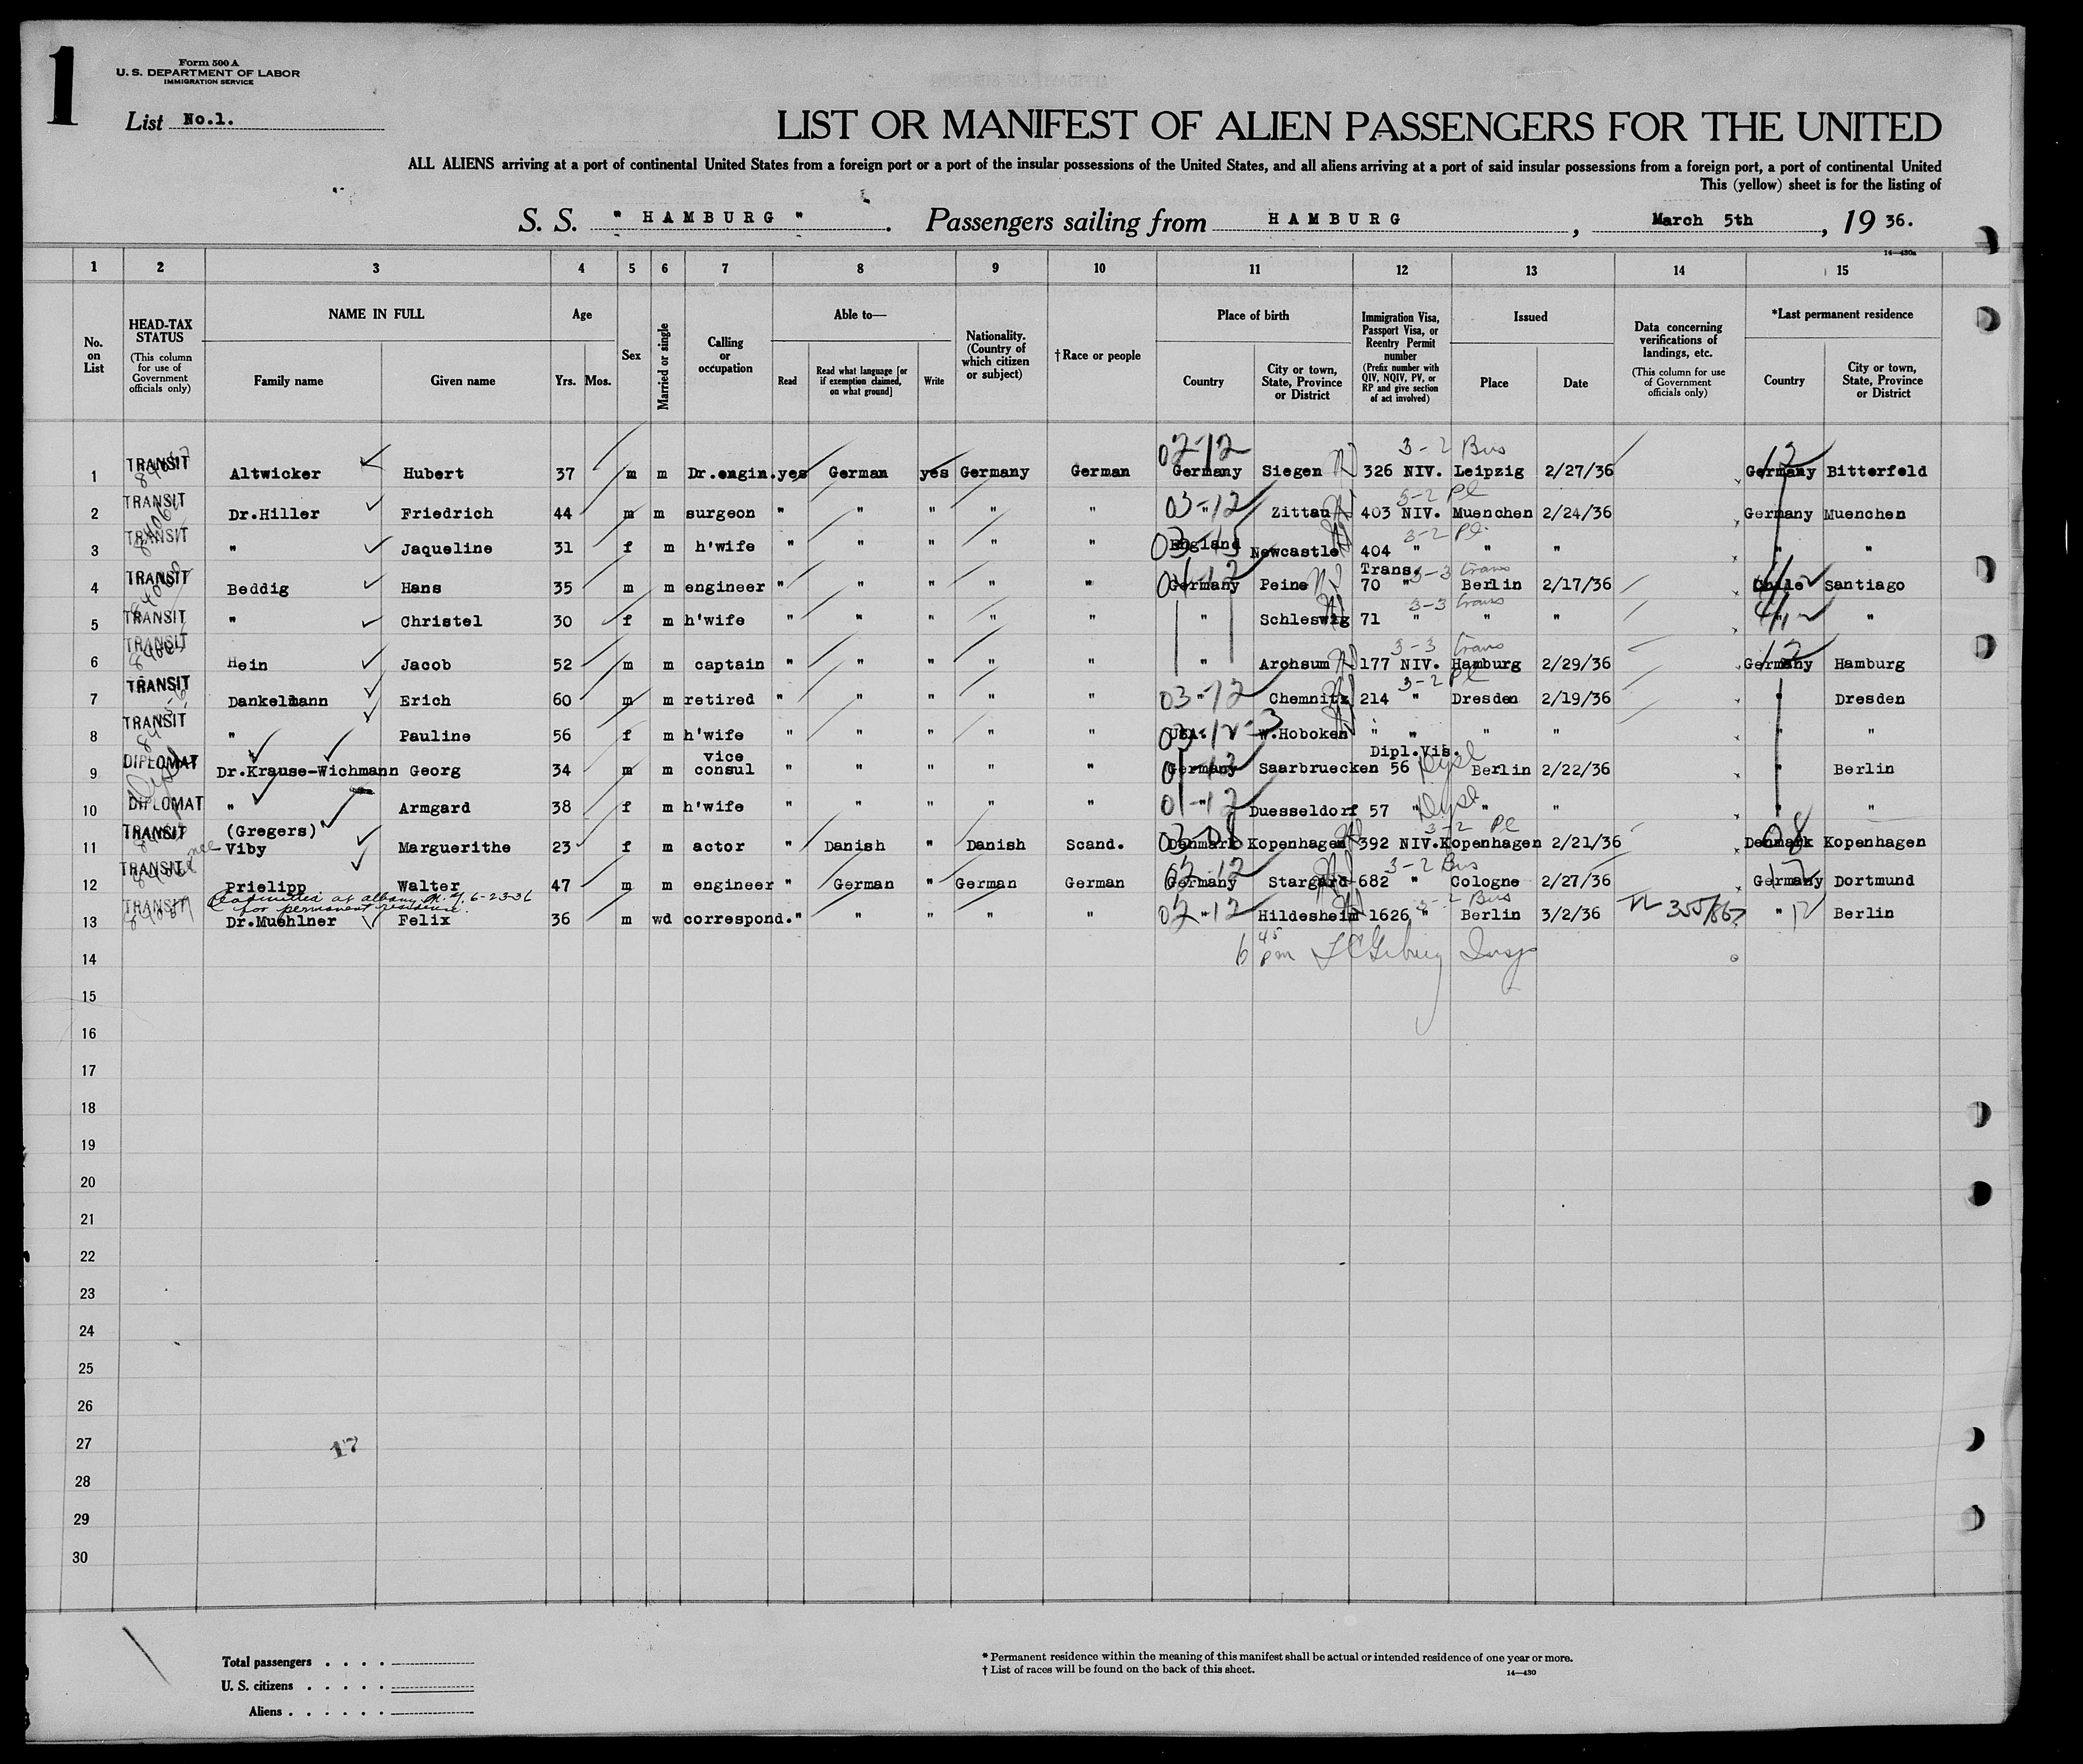 1
Form 500 A
U. S. DEPARTMENT OF LABOR
IMMIGRATION SERVICE
List No.1.
LIST OR MANIFEST OF ALIEN PASSENGERS FOR THE UNITED
ALL ALIENS arriving at a port of continental United States from a foreign port or a port of the insular possessions of the United States, and all aliens arriving at a port of said insular possessions from a foreign port, a port of continental United
This (yellow) sheet is for the listing of
S. S. " HAMBURG ". Passengers sailing from HAMBURG, March 5th, 19 36.
14—430a
1 2 3 4 5 6 7 8 9 10 11 12 13 14 15
No. on List
HEAD-TAX STATUS (This column for use of Government officials only)
NAME IN FULL Family name Given name
Age Yrs. Mos.
Sex
Married or single
Calling or occupation
Able to— Read Read what language [or if exemption claimed, on what ground] Write
Nationality. (Country of which citizen or subject)
†Race or people
Place of birth Country City or town, State, Province or District
Immigration Visa, Passport Visa, or Reentry Permit number (Prefix number with QIV, NQIV, PV, or RP and give section of act involved)
Issued Place Date
Data concerning verifications of landings, etc. (This column for use of Government officials only)
*Last permanent residence Country City or town, State, Province or District
02-12 3-2 Bus 12
1 TRANSIT Altwicker Hubert 37 m m Dr.engin. yes German yes Germany German Germany Siegen 326 NIV. Leipzig 2/27/36 Germany Bitterfeld
03-12 3-2 Pl
2 TRANSIT Dr.Hiller Friedrich 44 m m surgeon " " " " " " Zittau 403 NIV. Muenchen 2/24/36 Germany Muenchen
3-2 Pl.
3 TRANSIT " Jaqueline 31 f m h'wife " " " " " England Newcastle 404 " " " " "
Trans. 3-3 trans
4 TRANSIT Beddig Hans 35 m m engineer " " " " " Germany Peine 70 " Berlin 2/17/36 Chile Santiago
3-3 trans
5 TRANSIT " Christel 30 f m h'wife " " " " " " Schleswig 71 " " " " "
3-3 trans 12
6 TRANSIT Hein Jacob 52 m m captain " " " " " " Archsum 177 NIV. Hamburg 2/29/36 Germany Hamburg
03-12 3-2 Pl
7 TRANSIT Dankelmann Erich 60 m m retired " " " " " " Chemnitz 214 " Dresden 2/19/36 " Dresden
8 TRANSIT " Pauline 56 f m h'wife " " " " " USA. W.Hoboken " " " " " "
Dipl.Vis.
9 DIPLOMAT Dr.Krause-Wichmann Georg 34 m m vice consul " " " " " Germany Saarbruecken 56 Berlin 2/22/36 " Berlin
01-12
10 DIPLOMAT " Armgard 38 f m h'wife " " " " " " Duesseldorf 57 " " " " "
3-2 Pl 08
11 TRANSIT (Gregers) Viby Marguerithe 23 f m actor " Danish " Danish Scand. Denmark Kopenhagen 392 NIV. Kopenhagen 2/21/36 Denmark Kopenhagen
02-12 3-2 Bus 12
12 TRANSIT Prielipp Walter 47 m m engineer " German " German German Germany Stargard 682 " Cologne 2/27/36 Germany Dortmund
Readmitted at albany N.Y. 6-23-36
for permanent residence.
02-12 3-2 Bus 12
13 TRANSIT Dr.Muehlner Felix 36 m wd correspond. " " " " " " Hildesheim 1626 " Berlin 3/2/36 " Berlin
14 6 45 pm Insp
15
16
17
18
19
20
21
22
23
24
25
26
27 17
28
29
30
Total passengers . . . .
U. S. citizens . . . . .
Aliens . . . . . .
* Permanent residence within the meaning of this manifest shall be actual or intended residence of one year or more.
† List of races will be found on the back of this sheet.
14—430